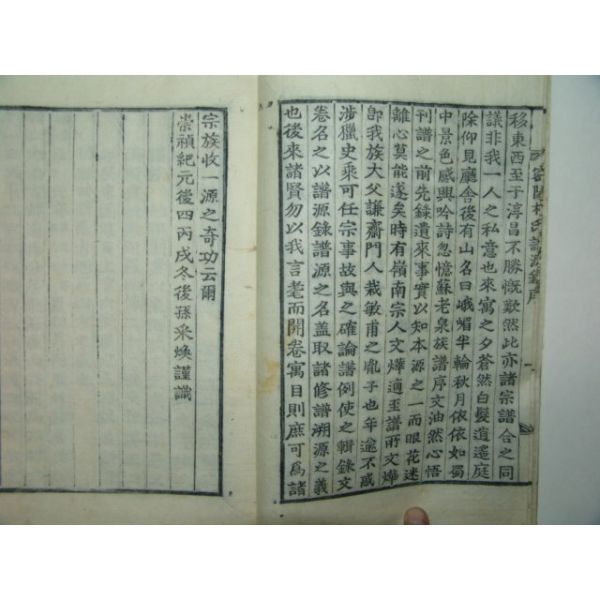 移東西至于淳昌不勝慨歎然此亦諸宗譜合之同
議非我一人之私意也來寓之夕蒼然白髮逍遙庭
除仰見廳舍後有山名曰峨嵋半輪秋月依依如蜀
中景色感興吟詩忽憶蘇老泉族譜序文油然心悟
刊譜之前先錄遺來事實以知本源之一而眼花迷
離心莫能遂矣時有嶺南宗人文燁適至譜所文燁
卽我族大父謙齋門人栽敏甫之胤子也年逾不惑
涉獵史乘可任宗事故與之確論譜例使之輯錄文
卷名之以譜源錄譜源之名盖取諸修譜溯源之義
也後來諸賢勿以我言耄而開卷寓目則庶可爲諸
宗族收一源之奇功云爾
崇禎紀元後四丙戌冬後孫采煥謹識